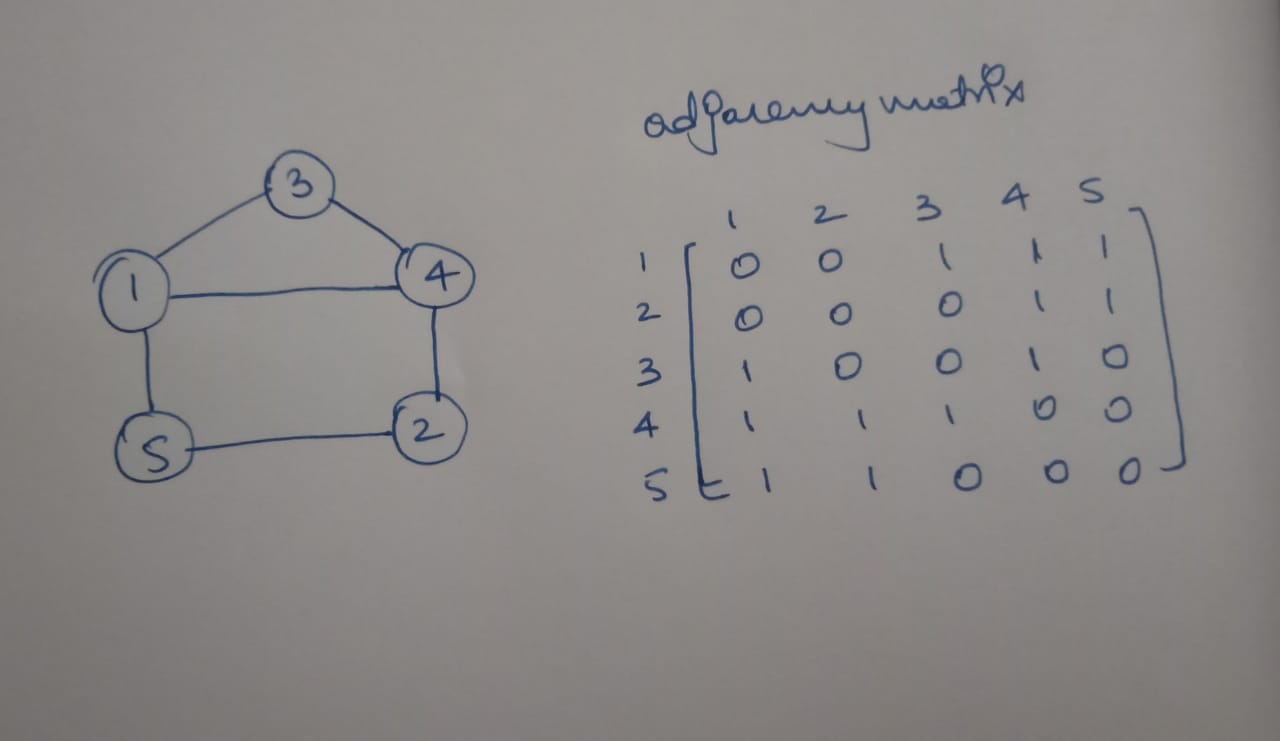 adjacency matrix
3
1
4
5
2
1 2 3 4 5
1 0 0 1 1 1
2 0 0 0 1 1
3 1 0 0 1 0
4 1 1 1 0 0
5 1 1 0 0 0